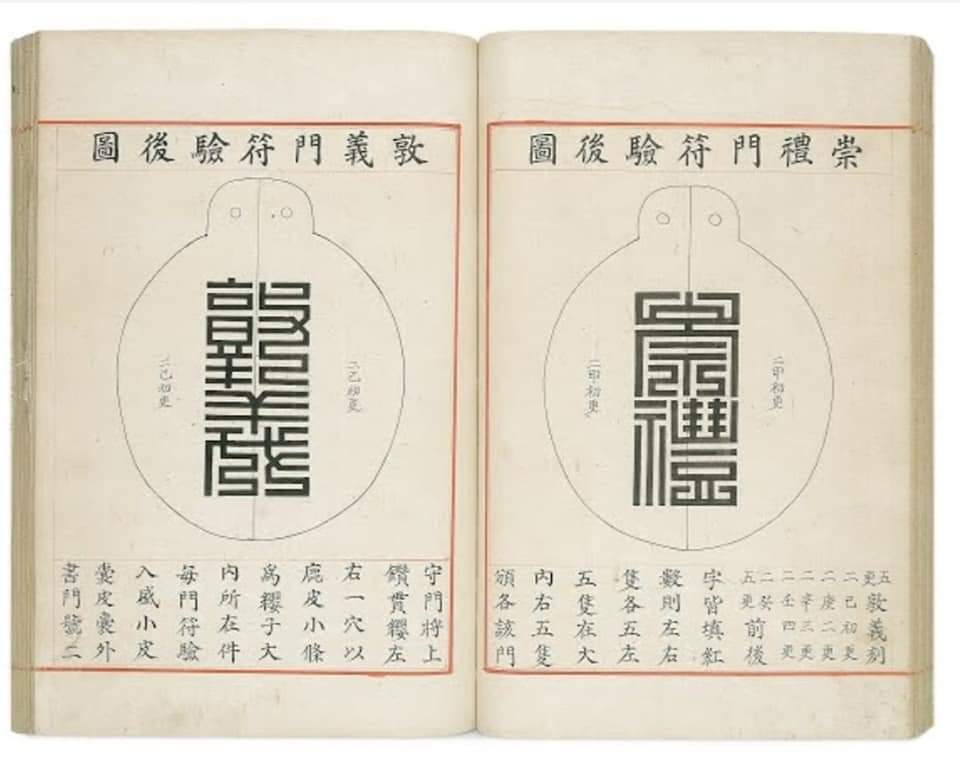 崇禮門符驗後圖
崇禮
二甲初更
二甲初更
五更敦義刻
二己初更
二庚二更
二辛三更
二壬四更
二癸
五更前後
字皆填紅
數則左右
隻各五左
五隻在大
內右五隻
頒各該門
敦義門符驗後圖
敦義
二乙初更
二乙初更
守門將上
鑽貫纓左
右一穴以
鹿皮小條
為纓子大
內所在件
每門符驗
入盛小皮
囊皮囊外
書門號二